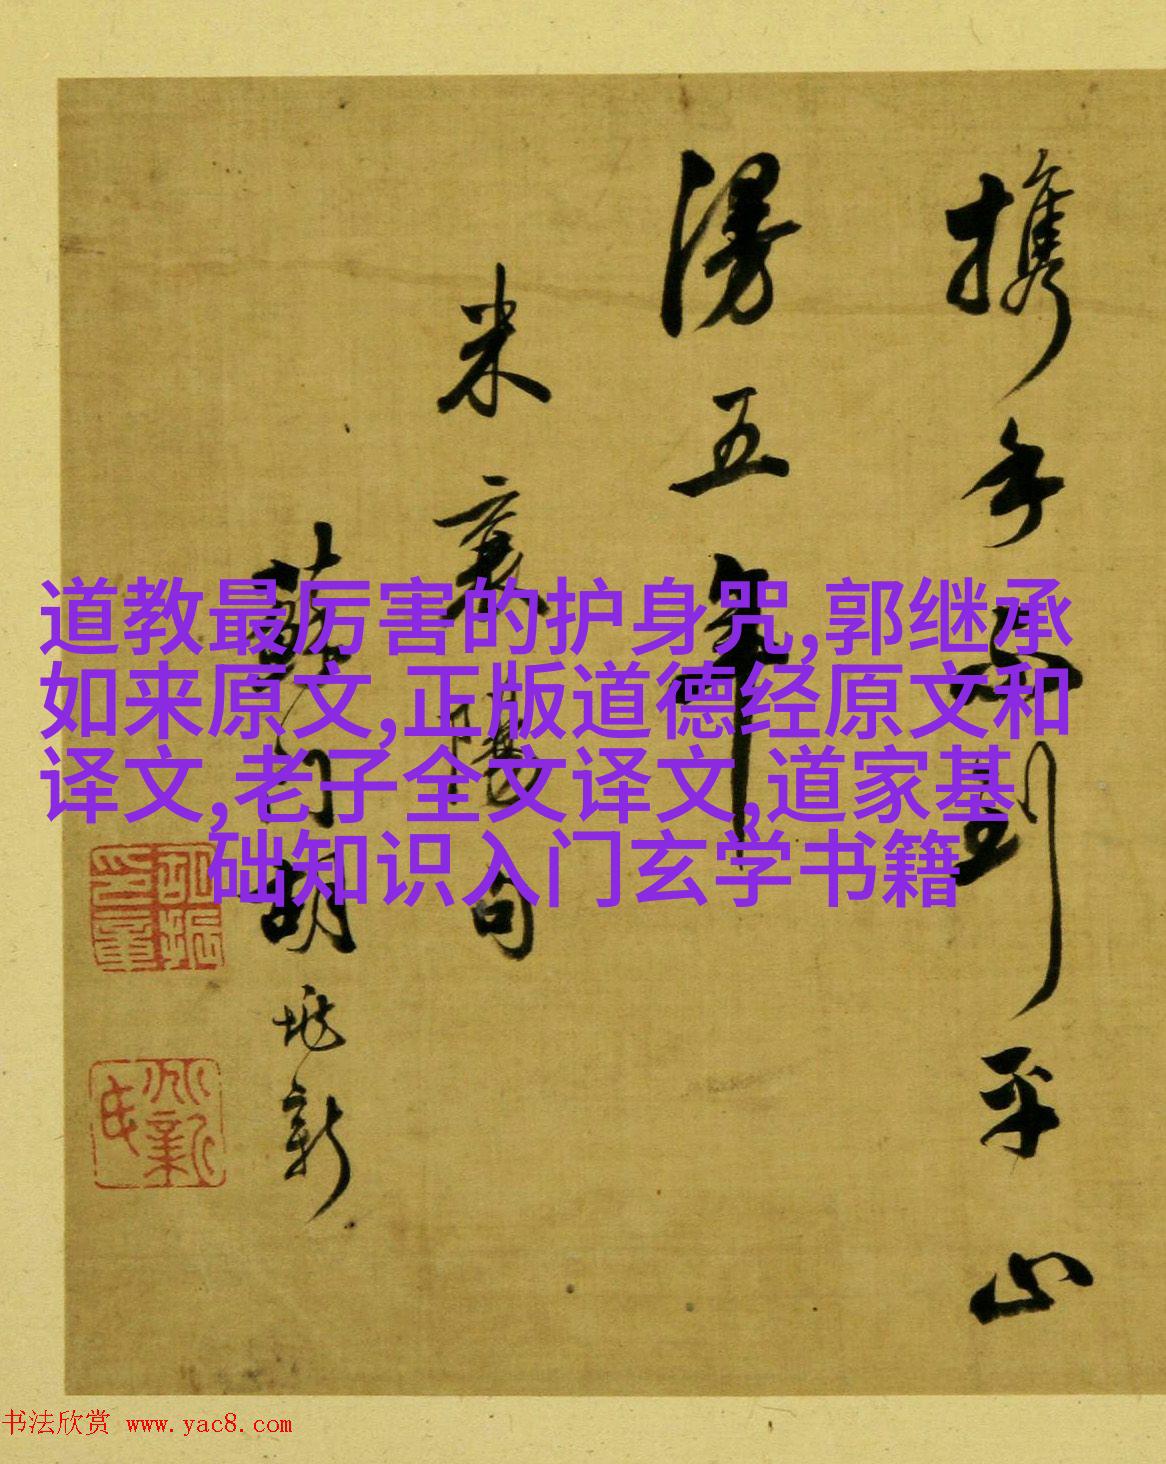 携手到平山
漫五年
米襄陽句
蘇門胡兆新
兆新氏
道教最厉害的护身咒,郭继承
如来原文,正版道德经原文和
译文,老子全文译文,道家基
础知识入门玄学书籍
书法欣赏 www.yac8.com